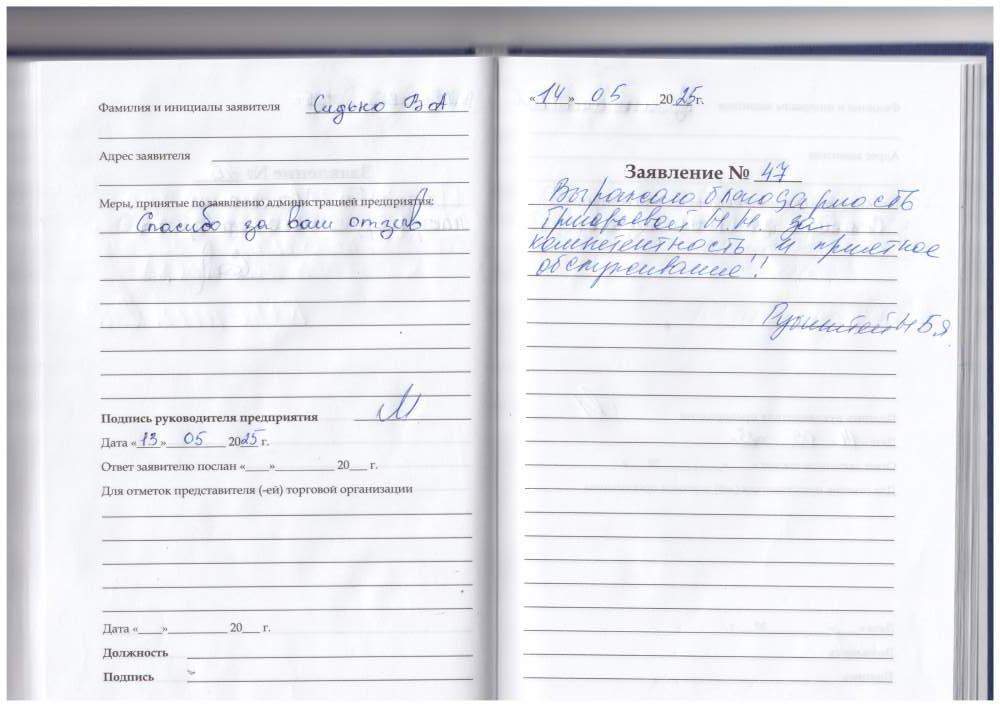 Фамилия и инициалы заявителя Сидько В А
Адрес заявителя
Меры, принятые по заявлению администрацией предприятия:
Спасибо за ваш отзыв
Подпись руководителя предприятия
Дата «13» 05 2025 г.
Ответ заявителю послан «____»__________ 20___ г.
Для отметок представителя (-ей) торговой организации
Дата «____»__________ 20___ г.
Должность
Подпись
«14» 05 2025г.
Заявление № 47
Выражаю благодарность
Н.Н. за
компетентность, и приятное
обслуживание!!
Б Я